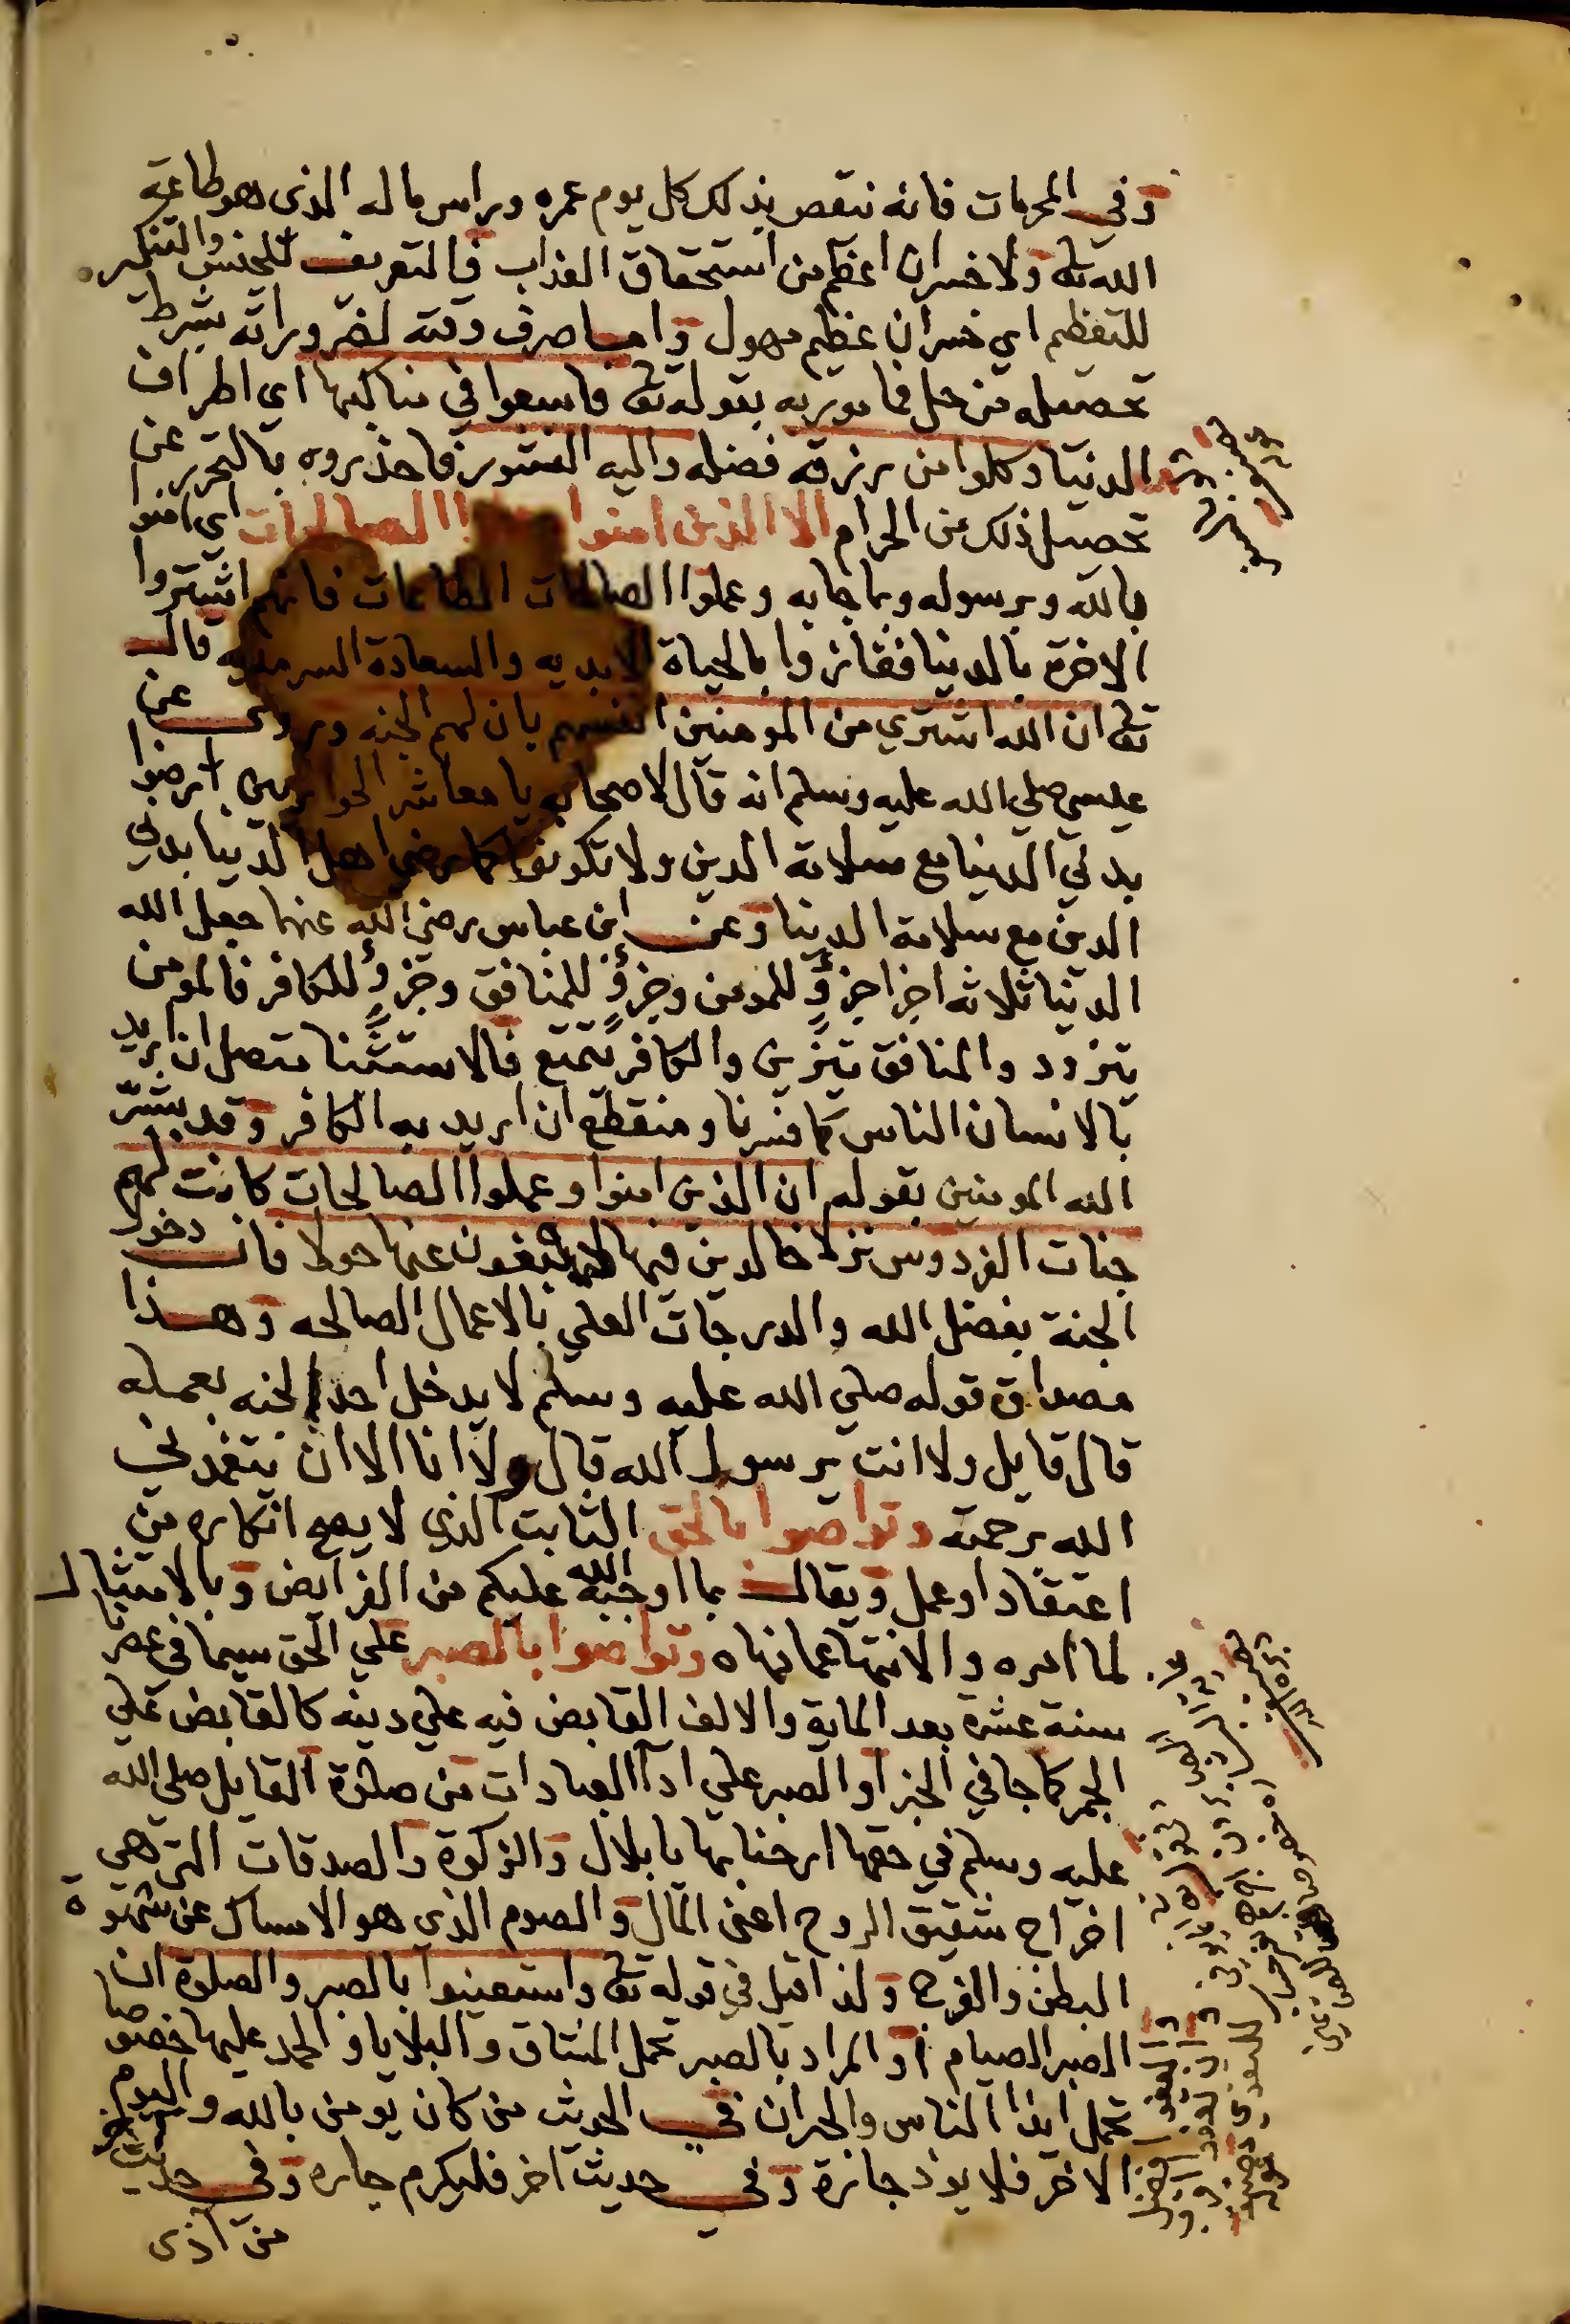 وفي المحرمات فانه نتقص بذلك كل يوم عمره وراس ماله الذي هو طاعة
الله تعا ولا خسران اعظم من استحقاق العذاب فالتعريف للجنس والتنكير
للتعظيم اي خسران عظيم مهول واما صرف وقته لضروراته بشرط
تحصيله من حل فمامور به بقوله تعا فاسعوا في مناكبها اي اطراف
الدنيا وكلوا من رزقه فضله واليه النشور فاحذروه بالتحرير عن
تحصيل ذلك من الحرام الا الذين امنوا وعملوا الصالحات اي امنوا
بالله وبرسوله وبما جا به وعملوا الصالحات الطاعات فانهم اشتروا
الاخرة بالدنيا ففازوا بالحياة الابديه والسعادة السرمديه قال
تعا ان الله اشتري من المومنين انفسهم بان لهم الجنه وروي عن
عيسي صلي الله عليه وسلم انه قال لاصحابه يا معاشر الحواريين ارضوا
بدني الدنيا مع سلامة الدين ولا تكونوا كما رضي اهل الدنيا بدني
الدين مع سلامة الدنيا وعن ابن عباس رضي الله عنهما جعل الله
الدنيا ثلاثه اجزا جزؤ للمومن وجزؤ للمنافق وجزؤ للكافر فالمومن
يتزود والمنافق يتزين والكافر يتمتع فالاستثنا متصل ان اريد
بالانسان الناس كما فسرنا ومنقطع ان اريد به الكافر وقد بشر
الله المومنين بقوله ان الذين امنوا وعملوا الصالحات كانت لهم
جنات الفردوس نزلا خالدين فيها لا يبغون عنها حولا فان دخول
الجنة بفضل الله والدرجات العلي بالاعمال الصالحه وهذا
مصداق قوله صلي الله عليه وسلم لا يدخل احد الجنه بعمله
قال قايل ولا انت يرسول الله قال ولا انا الا ان يتغمدني
الله برحمته وتواصوا بالحق الثابت الذي لا يصح انكاره من
اعتقاد او عمل ويقال بما اوجبه الله عليكم من الفرايض وبالامتثال
لما امره والانتها عما نهاه وتواصوا بالصبر علي الحق سيما في عصرنا
سنة عشره بعد الماية والالف القابض فيه علي دينه كالقابض علي
الجمر كما جا في الخبر او الصبر علي ادآ العبادات من صلوة القايل صلي الله
عليه وسلم في حقها ارحنا بها يا بلال والزكوة والصدقات التي هي
اخراج شقيق الروح اعني المال والصوم الذي هو الامساك عن شهوة
البطن والفرج ولذا قيل في قوله تعا واستعينوا بالصبر والصلوة ان
الصبر الصيام او المراد بالصبر تحمل المشاق والبلايا والحمد عليها خصوصا
تحمل ايذا الناس والجيران في الحديث من كان يومن بالله واليوم
الاخر فلا يوذ جاره وفي حديث اخر فليكرم جاره وفي حديث اخر
من آذي